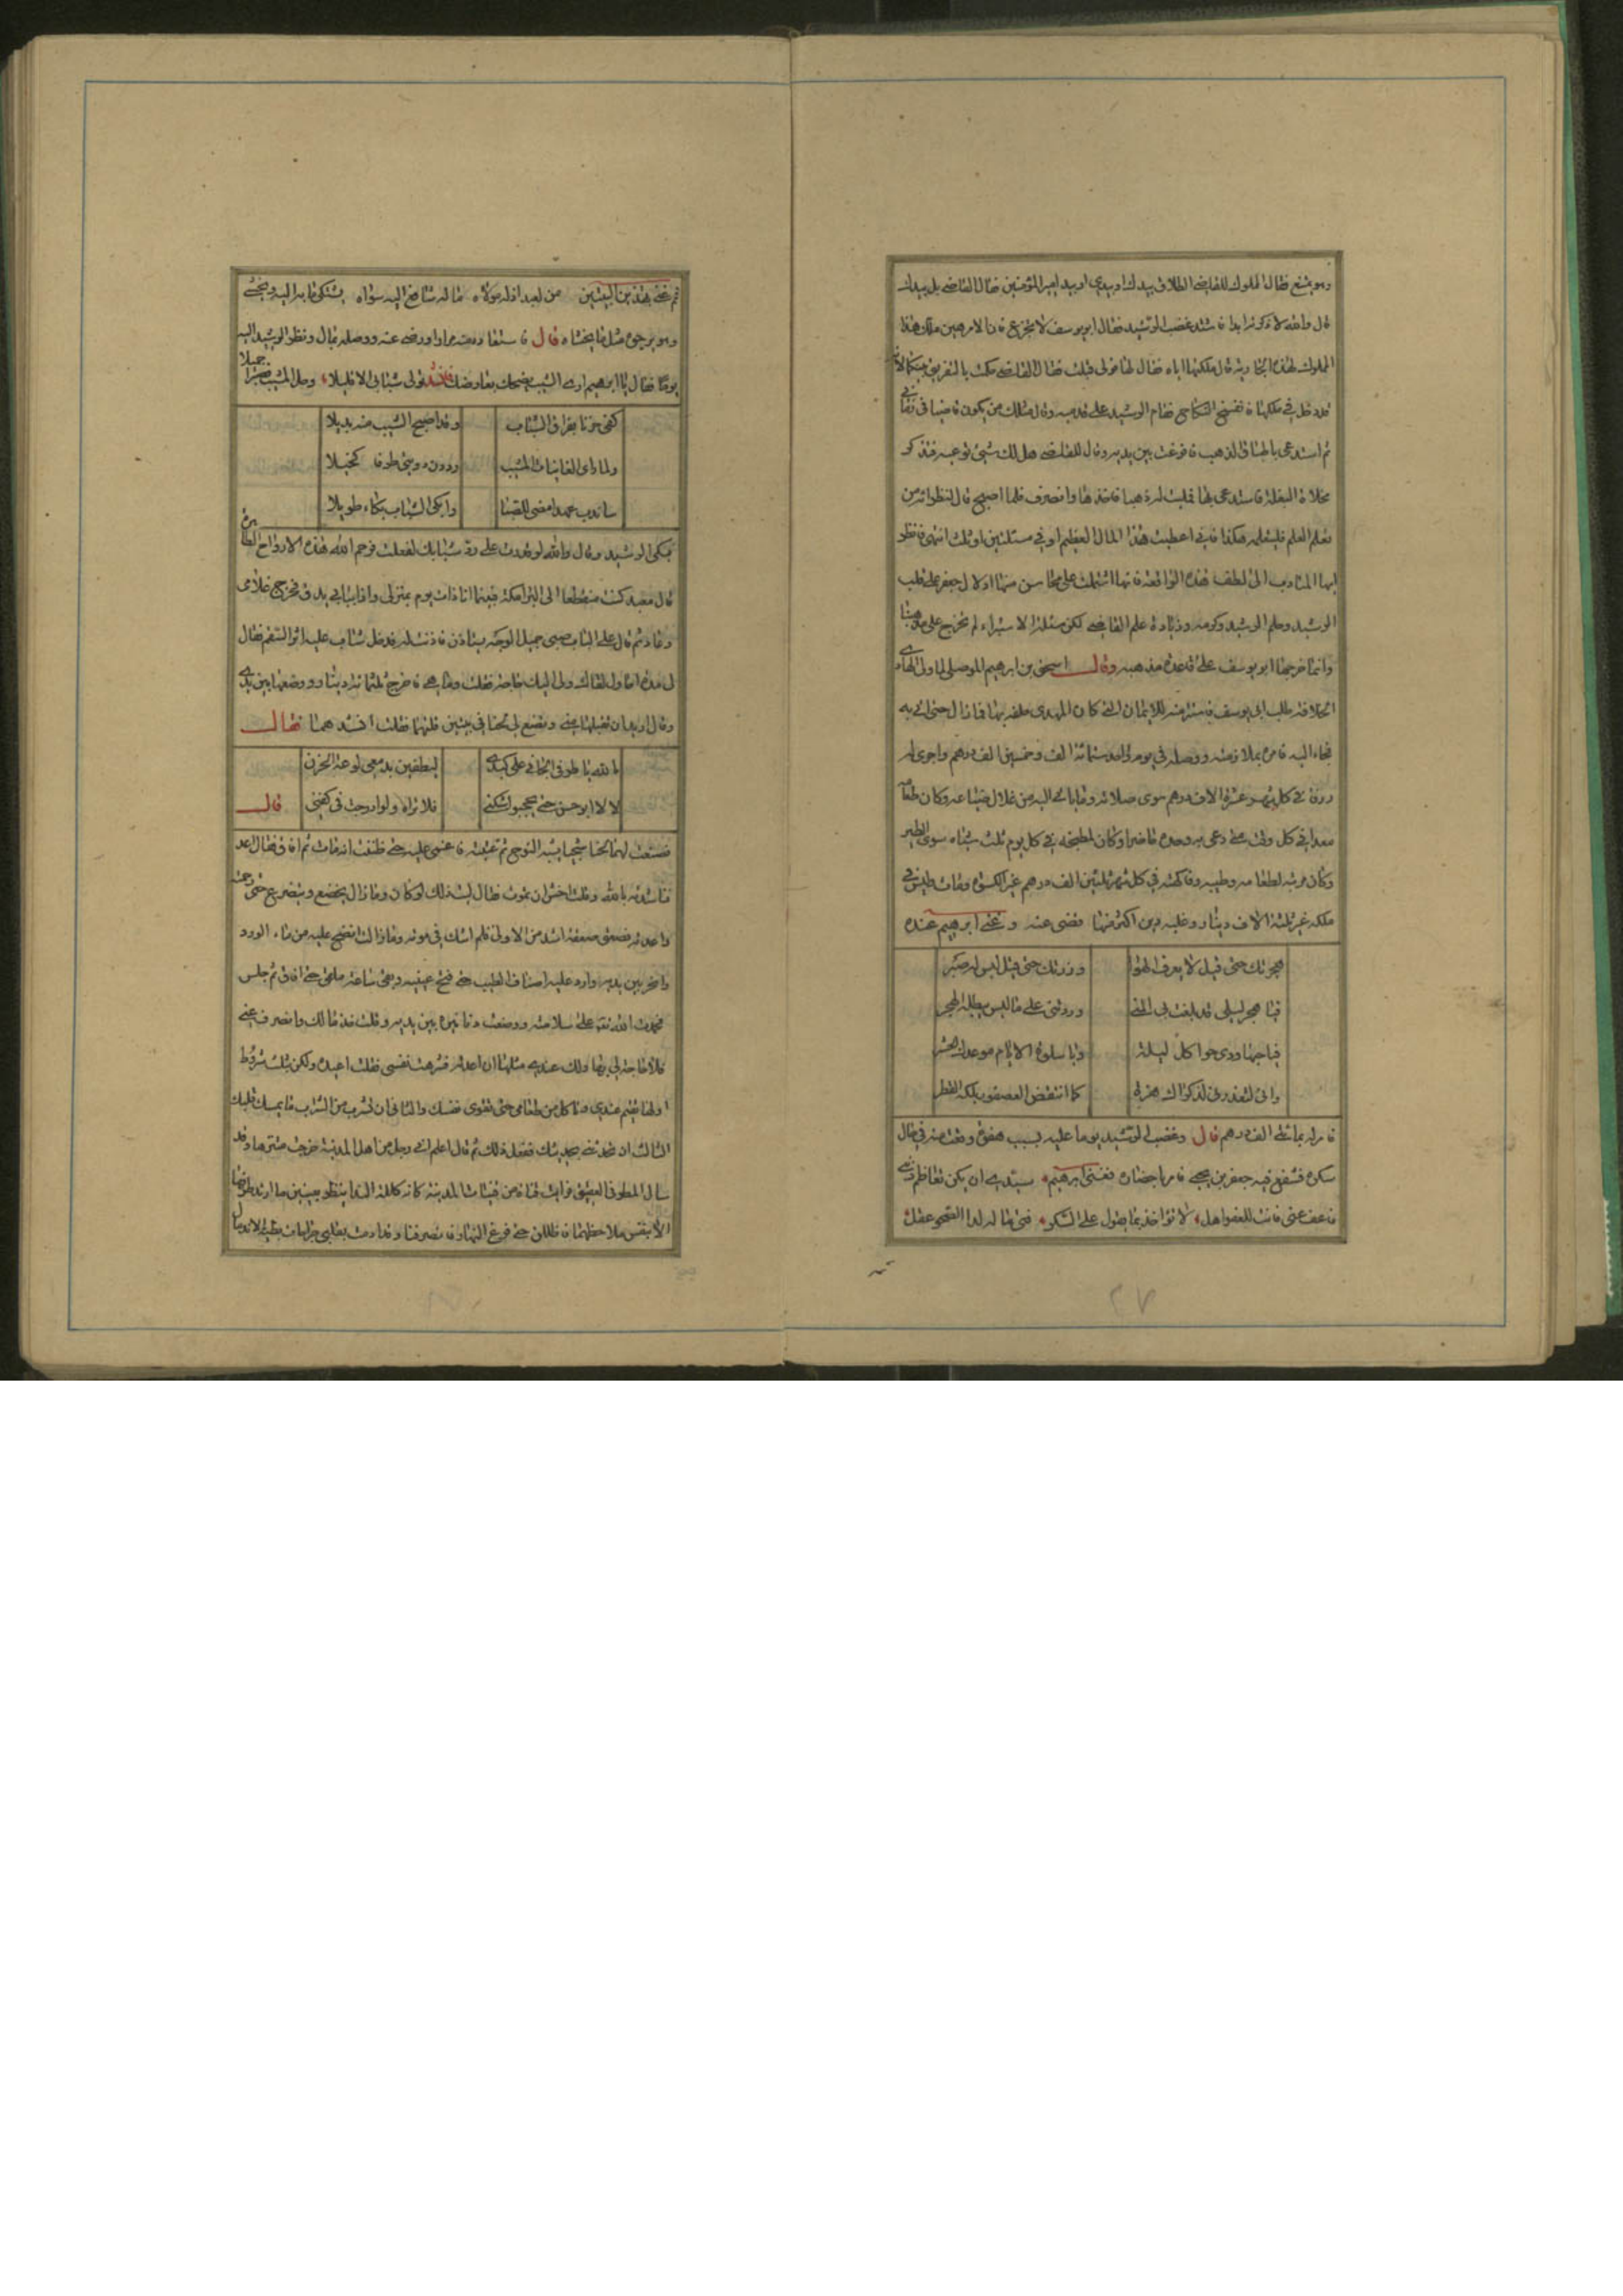 وهو يمتنع فقال المملوك للقاضي الطلاق بيدك او بيدي او بيد امير المؤمنين فقال القاضي بل بيدك
قال والله لا ذكوته ابدا فاشتد غضب الرشيد فقال ابو يوسف لا تجزع فان الامر هين ملك هذا
المملوك لهذه الجارية قال ملكتها اياه فقال لها قولي قبلت فقال القاضي حكمت بالتفريق بينكما لانه
قد دخل في ملكها فانفسخ النكاح فقام الرشيد على قدميه وقال مثلك من يكون قاضيا في زماني
ثم استدعى باطباق الذهب فافرغت بين يديه وقال للقاضي هل لك شيئ توعيه فذكر
مخلاة البغلة فاستدعى بها فملئت له ذهبا فاخذها وانصرف فلما اصبح قال انظروا من
تعلم العلم فليتعلمه هكذا فاني اعطيت هذا المال العظيم او في مسئلتين او ثلث انتهى فانظر
ايها المتادب الى لطف هذه الواقعة فانها اشتملت على محاسن منها ادلال جعفر على قلب
الرشيد وحلم الرشيد وكرمه وزيادة علم القاضي لكن مسئلة الاستبراء لم تخرج على مذهبنا
وانما خرجها ابو يوسف على قاعدة مذهبه وقال اسحق بن ابرهيم الموصلي لما ولي الهادي
الخلافة طلب ابي يوسف فاستتر منه للايمان التي كان المهدي حلفه بها فما زال حتى اتي به
فجاء اليه فامره بملازمته ووصله في يوم واحد ستمائة الف وخمسين الف درهم واجرى له
رزقا في كل شهر عشرة الاف درهم سوى صلاته وما ياتي اليه من غلال ضياعه وكان طعامه
معدا في كل وقت متى دعى به وجده حاضرا وكان لمطبخه في كل يوم ثلث شياه سوى الطير
وكان مرتبه لطعامه وطيبه وفاكهته في كل شهر ثلثين الف درهم غير الكسوة ومات وليس في
ملكه غير ثلثة الاف دينار وعليه دين اكثر منها فقضى عنه وغنى ابرهيم عنده
هجرتك حتى قيل لا يعرف الهوا وزرتك حتى قيل ليس له صبر
فيا هجر ليلى قد بلغت بي المنى وزدتني على ما ليس يبلغه الهجر
فيا حبها زدني جوا كل ليلة ويا سلوة الايام موعدك الحشر
واني لتعذروني لذكراك هزة كما انتفض العصفور بلله القطر
فامر له بمائتي الف درهم قال وغضب الرشيد يوما عليه بسبب هفوة وقعت منه في حال
سكره فتشفع فيه جعفر بن يحيى فامر باحضاره فغنى ابرهيم سيدي ان يكن تعاظم ذنبي
فاعف عني فانت للعفو اهل لا تواخذ بما يقول على السكر فتى ما له لدا الصحو عقل
ثم غنى هذين البيتين من لعبد اذله مولاه ما له شافع اليه سواه يشتكي ما به اليه ويخشى
وهو يرجوه مثل ما يخشاه قال فاستعادنيه مرارا ورضي عنه ووصله بمال ونظر الرشيد اليه
يوما فقال يا ابرهيم ارى الشيب يضحك بعارضك فانشد تولى شبابي الا قليلا وحل المشيب فصبرا جميلا
كفى حزنا بفراق الشباب وقد اصبح الشيب منه بديلا
ولما راى الغانيات المشيب رددن دوني طرفا كحيلا
ساندب عهدا مضى للصبا وابكي الشباب بكاء طويلا
فبكى الرشيد وقال والله لو قدرت على رد شبابك لفعلت فرحم الله هذه الارواح الطاهرين
قال معبد كنت منقطعا الى البرامكة فبينما انا ذات يوم بمنزلي واذا بابي يدق فخرج غلامي
وعاد ثم قال على الباب صبي جميل الوجه يستاذن فاذنت له فدخل شاب عليه اثر السقم فقال
لي مدة احاول لقاك ولي اليك حاجة فقلت وما هي فاخرج ثلثمائة دينار ووضعها بين يدي
وقال اريد ان تقبلها مني وتصنع لي لحنا في بيتين قلتهما فقلت انشدهما فقال
بالله يا طرفي الجاني على كبدي ليطفين بدمعي لوعة الحزن
لا لا ابوحن حتى يحجبوا سكني فلا تراه ولو ادرجت في كفني قال
فصنعت لهما لحنا شجيا يشبه النوح ثم غنيته فاغشى عليه حتى ظننت انه مات ثم افاق فقال اعد
فناشدته بالله وقلت اخشى ان تموت فقال ليت ذلك لو كان وما زال يخضع ويتضرع حتى رحمته
واعدته فصعق صعقة اشد من الاولى فلم اشك في موته وما زالت انضح عليه من ماء الورد
وابخر بين يديه وارد عليه اصناف الطيب حتى فتح عينيه وبقي ساعة ملقى حتى افاق ثم جلس
فحمدت الله تعالى على سلامته ووضعت دنانيره بين يديه وقلت خذ مالك وانصرف عني
فلا حاجة لي بها ولك عندي مثلها ان اعدته فشرهت نفسي فقلت اعيده ولكن بثلث شروط
اولها تقيم عندي وتاكل من طعامي حتى تقوى نفسك والثاني ان تشرب من الشراب ما يمسك قلبك
الثالث ان تحدثني بحديثك ففعل ذلك ثم قال اعلم اني رجل من اهل المدينة خرجت متنزها وقد
سال المطر في العقيق فرايت فتاة من فتيات المدينة كانه كللته الندا ينظر بعينين ما ارتد طرفهما
الا بنفس ملاحظهما فاظللن حتى فرغ النهار فانصرفنا وقد ادمت بقلبي جراحات بطيئة الاندمال